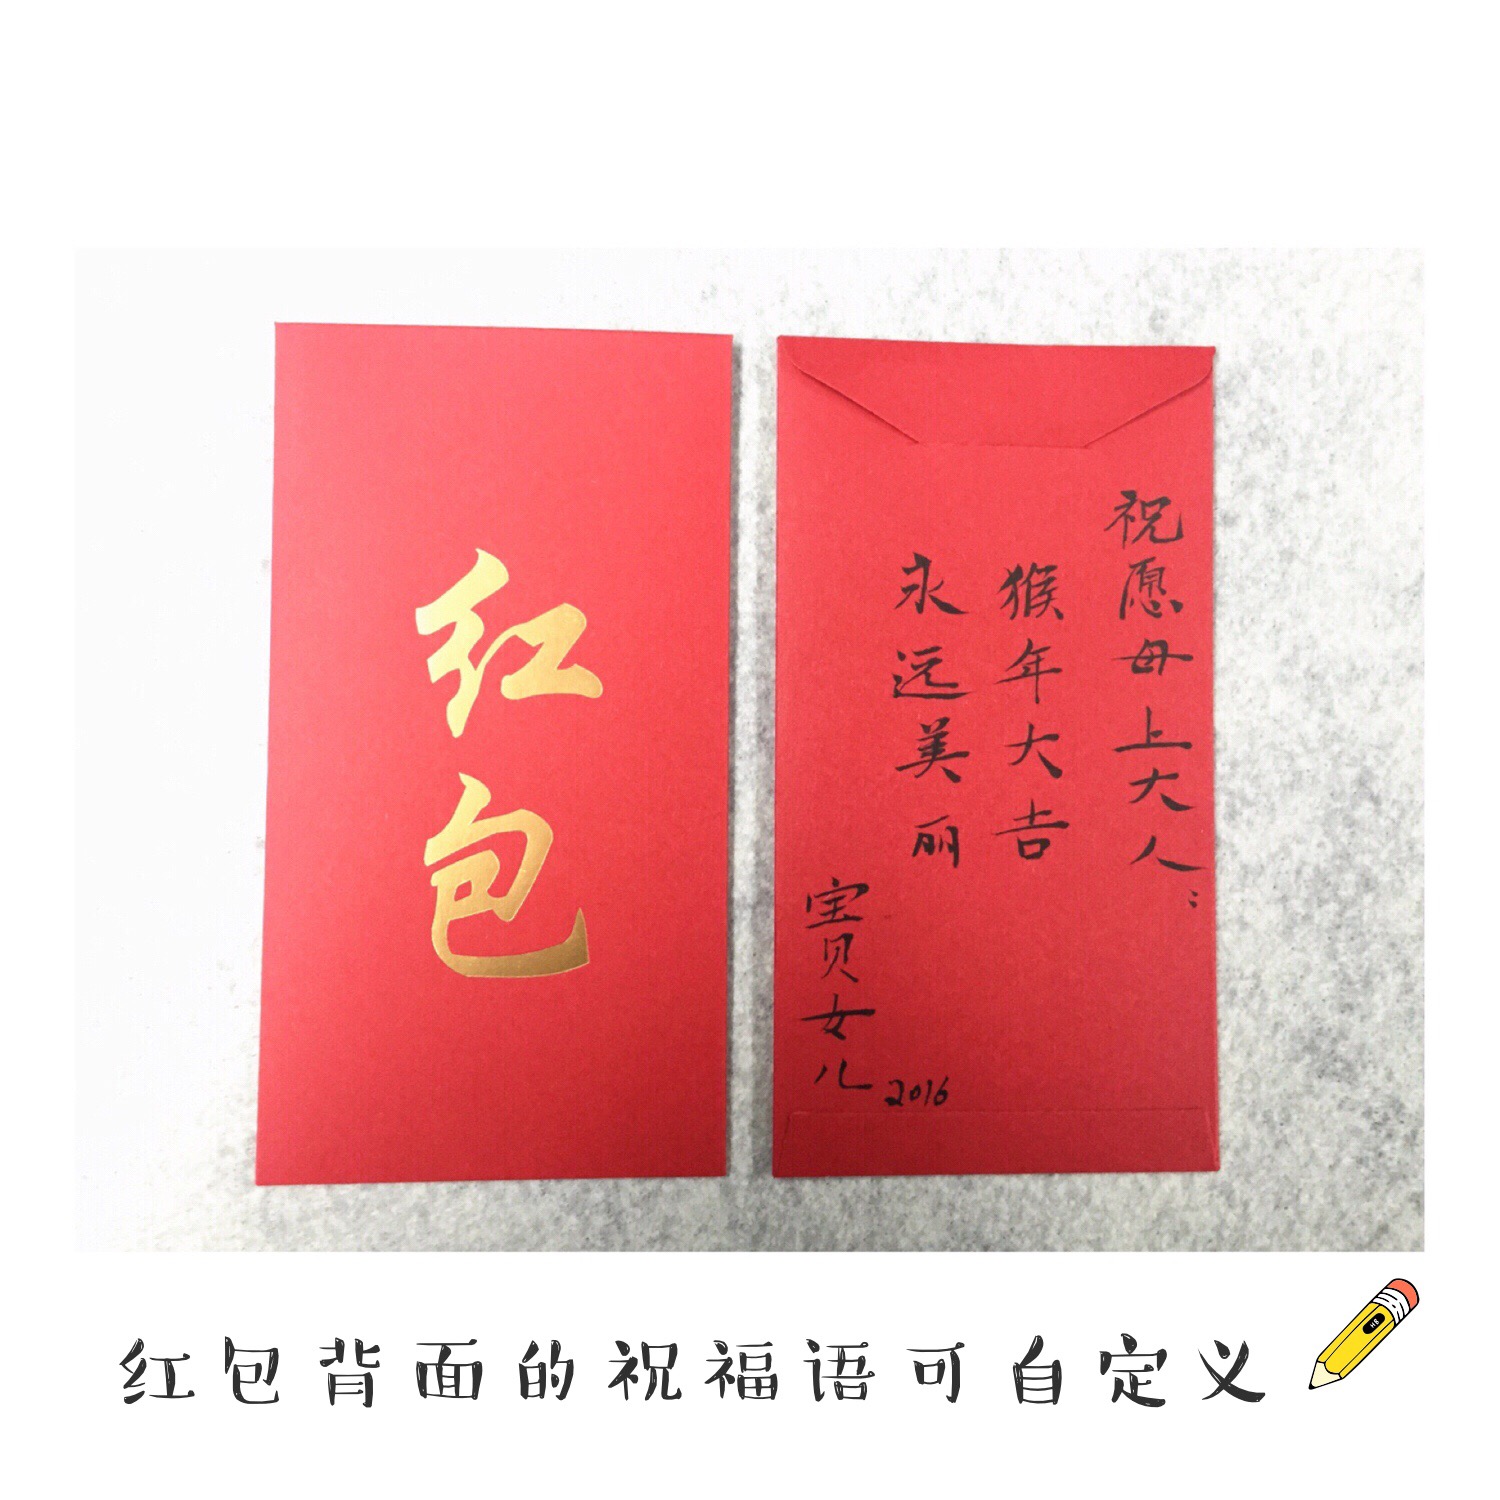 红包
祝愿母上大人：
猴年大吉
永远美丽
宝贝女儿
2016
红包背面的祝福语可自定义